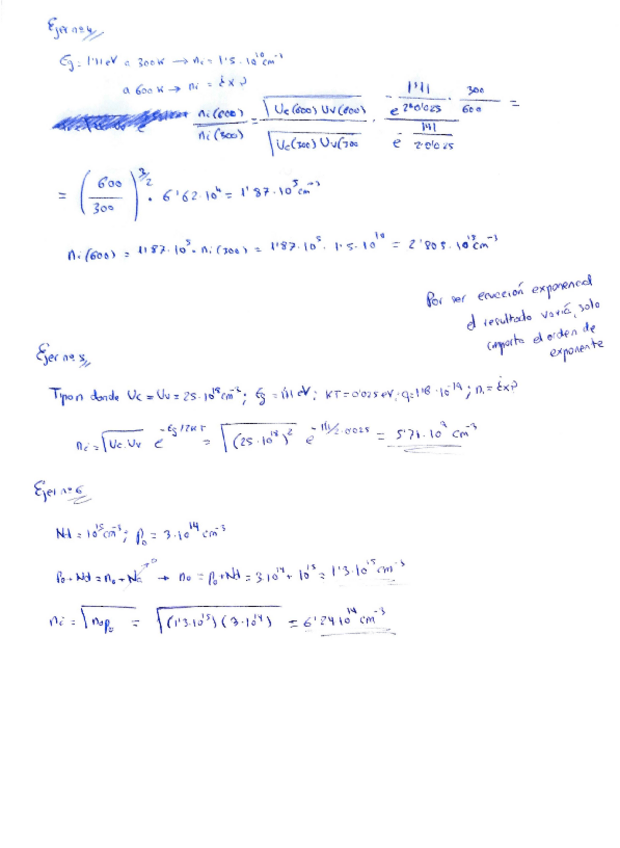 Ejer nº 4
Eg = 1'11 eV a 300 K → ni = 1'5·10^10 cm^-3
a 600 K → ni = ¿x?
ni(600)/ni(300) = √(Uc(600) Uv(600)) / √(Uc(300) Uv(300) · e^(-1'11/(2·0'025) · 300/600) / e^(-1'11/(2·0'025)) =
= (600/300)^(3/2) · 6'62·10^4 = 1'87·10^5 cm^-3
ni(600) = 1'87·10^5 · ni(300) = 1'87·10^5 · 1'5·10^10 = 2'805·10^15 cm^-3
Por ser ecuación exponencial
el resultado varía, solo
importa el orden de
exponente
Ejer nº 5
Tipo n donde Uc = Uv = 25·10^18 cm^-3; Eg = 1'11 eV; KT = 0'025 eV; ni = ¿x?
ni = √(Uc·Uv) e^(-Eg/2KT) = √((25·10^18)^2) e^(-1'11/2·0'025) = 5'71·10^9 cm^-3
Ejer nº 6
Nd = 10^15 cm^-3; p₀ = 3·10^14 cm^-3
p₀ + Nd = n₀ + Na → 0 → n₀ = p₀ + Nd = 3·10^14 + 10^15 = 1'3·10^15 cm^-3
ni = √(n₀p₀) = √((1'3·10^15)(3·10^14)) = 6'24·10^14 cm^-3